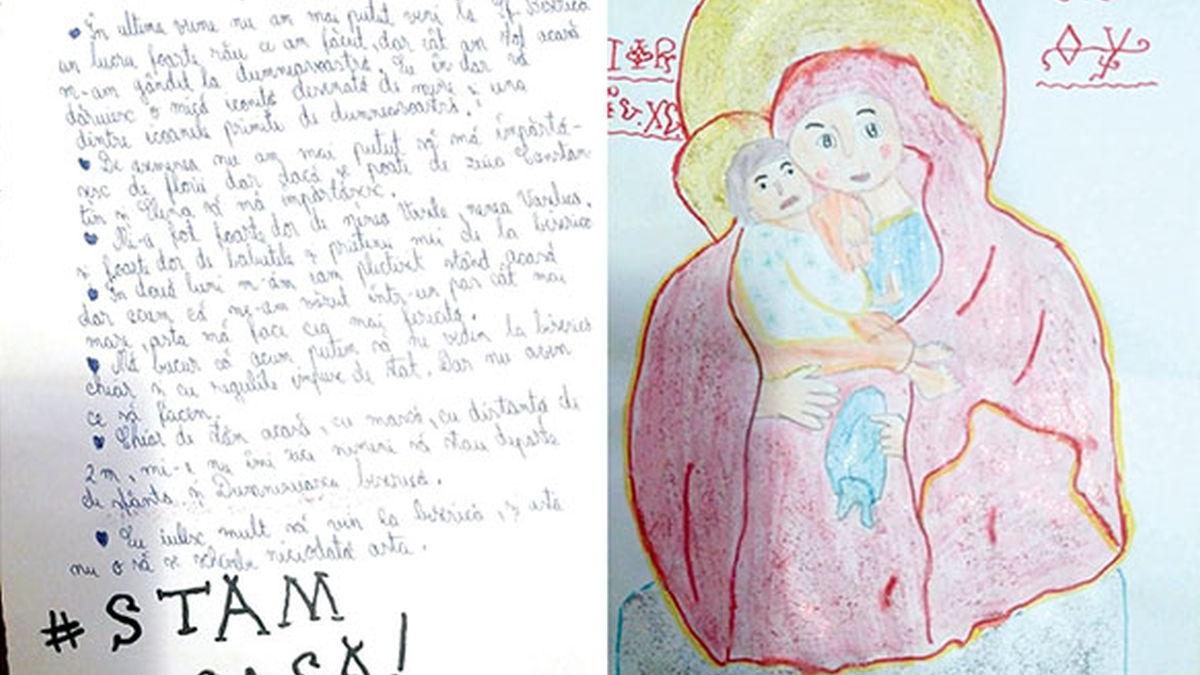 În ultima vreme nu am mai putut veni la Sf. Biserică
un lucru foarte rău ce am făcut, dar cât am stat acasă
m-am gândit la dumneavoastră. Eu în dar vă
dăruiesc o mică iconiță desenată de mine și una
dintre icoanele primite de dumneavoastră.
De asemenea nu am mai putut să mă împărtă-
șesc de florii dar dacă se poate de ziua Constan
tin și Elena să mă împărtășesc.
Mi-a fost foarte dor de nenea Vasile, nenea Vasilică,
și foarte dor de băbuțele și prietenii mei de la biserică
În două luni m-am cam plictisit stând acasă
dar acum că ne-am văzut într-un par cât mai
mare, asta mă face cea mai fericită.
Mă bucur că acum putem să ne vedem la biserică
chiar și cu regulile impuse de stat. Dar nu avem
ce să facem.
Chiar de stăm acasă, cu mască, cu distanță de
2 m, mie nu îmi zice nimeni să stau departe
de sfânta și Dumnezeiasca biserică.
Eu iubesc mult să vin la biserică, și asta
nu o să se schimbe niciodată asta.
# STĂM